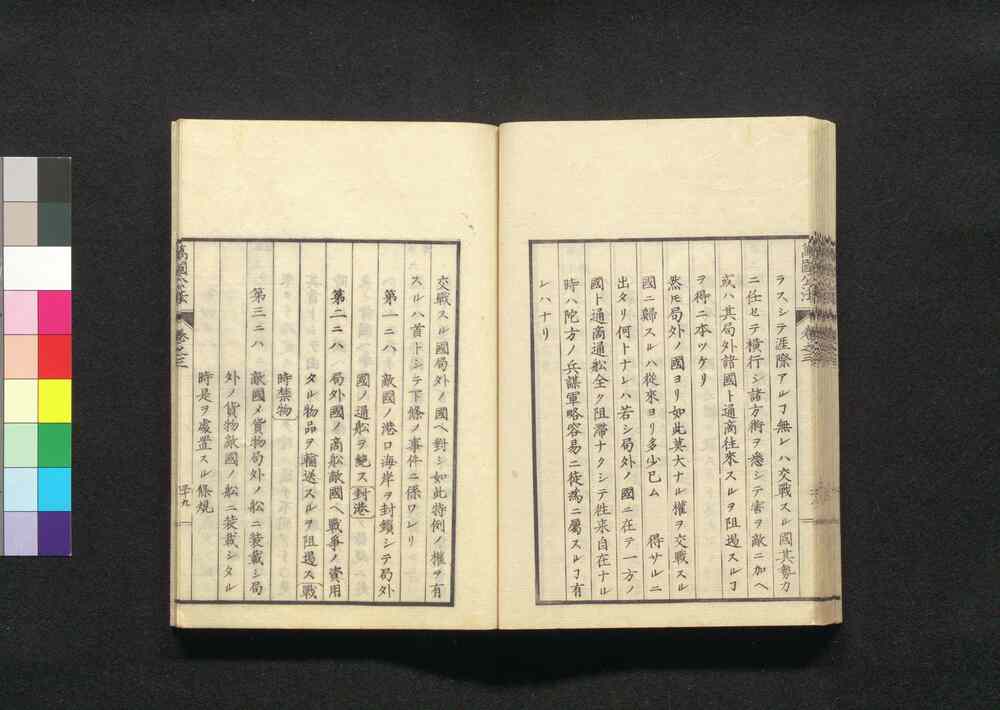 ラスシテ涯際アルヿ無レハ交戰スル國其勢力
ニ任セテ横行シ諸方術ヲ悉シテ害ヲ敵ニ加ヘ
或ハ其局外諸國ト通商往來スルヲ阻遏スルヿ
ヲ得ニ本ツケリ
然モ局外ノ國ヨリ如此莫大ナル權ヲ交戰スル
國ニ歸スルハ從來ヨリ多少已ム 得サルニ
出タリ何トナレハ若シ局外ノ國ニ在テ一方ノ
國ト通商通舩全ク阻滞ナクシテ徃来自在ナル
時ハ陀方ノ兵謀軍略容易ニ徒爲ニ屬スルヿ有
レハナリ
交戰スル國局外ノ國ヘ對シ如此特例ノ權ヲ有
スルハ首トシテ下條ノ事件ニ係ワレリ
第一ニハ 敵國ノ港口海岸ヲ封鎖シテ局外
國ノ通舩ヲ絶ス封港
第二ニハ 局外國ノ商舩敵國ヘ戰爭ノ資用
タル物品ヲ輸送スルヲ阻遏ス戰
時禁物
第三ニハ 敵國ノ貨物局外ノ舩ニ裝載シ局
外ノ貨物敵國ノ舩ニ裝載シタル
時是ヲ處置スル條規
萬國公法 卷之三
四十九